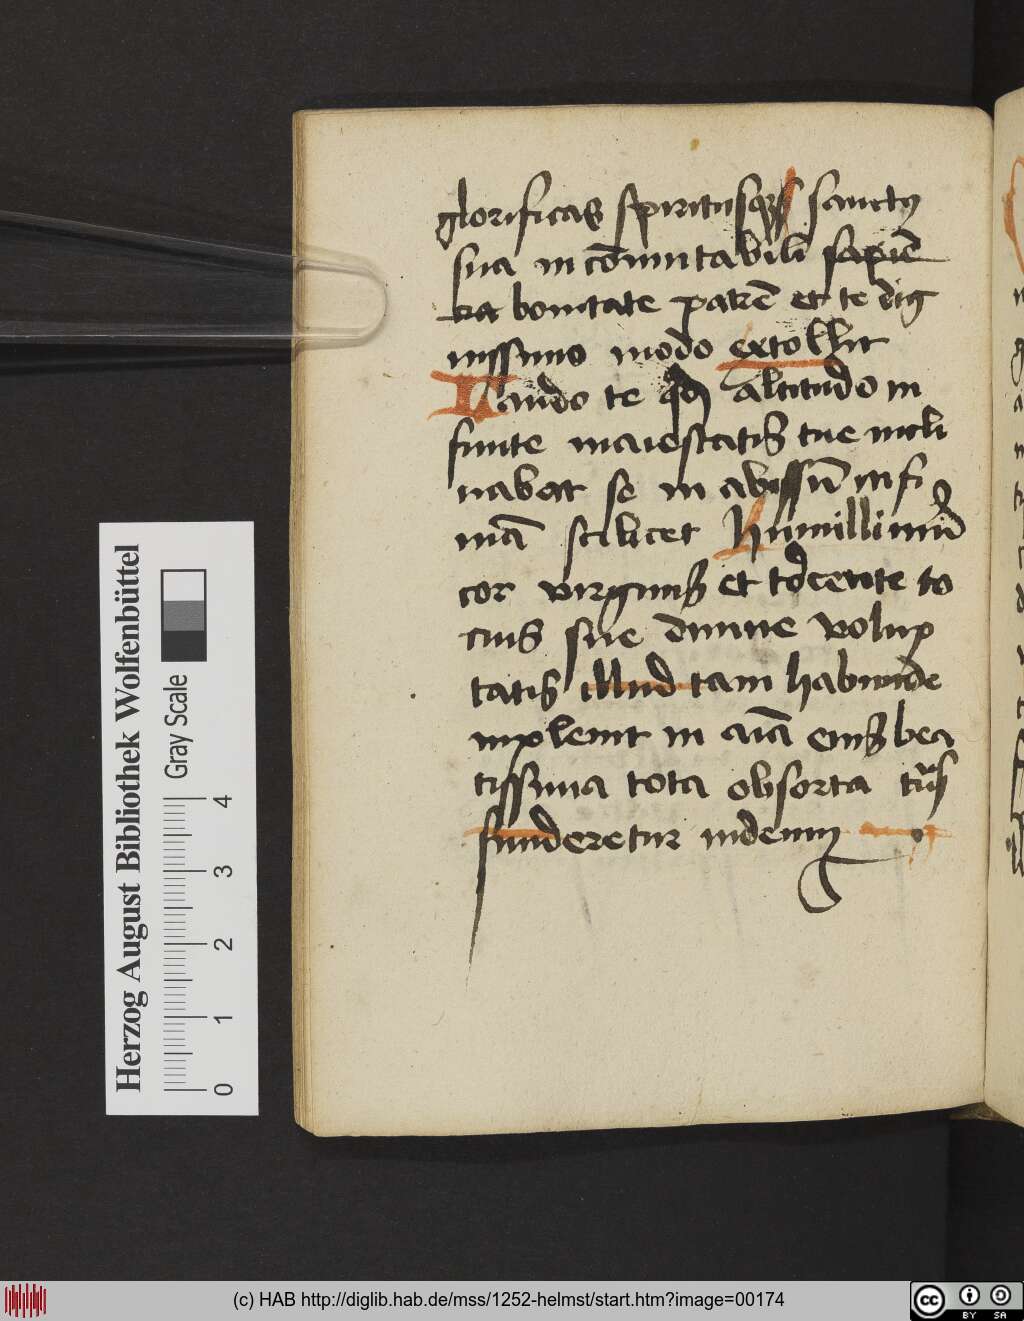 glorificas spiritusqꝫ sanctꝰ
sua incōmutabili sapiē
tia bonitate patrē et te dig
nissimo modo extollit
Laudo te altitudo in
finite maiestatis tue incli
nabat se in abissū infi
mā scilicet humillimū
cor virginis et tdcente to
cius sue diuine volup
tatis illud tam habunde
impleuit in aīa eius bea
tissima tota obsorta
funderetur indeum
Herzog August Bibliothek Wolfenbüttel
Gray Scale
0 1 2 3 4
(c) HAB http://diglib.hab.de/mss/1252-helmst/start.htm?image=00174
cc BY SA